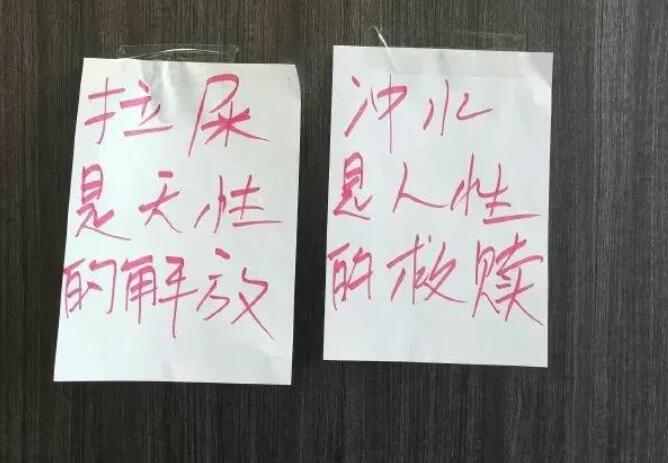 拉屎
是天性
的解放
冲水
是人性
的救赎